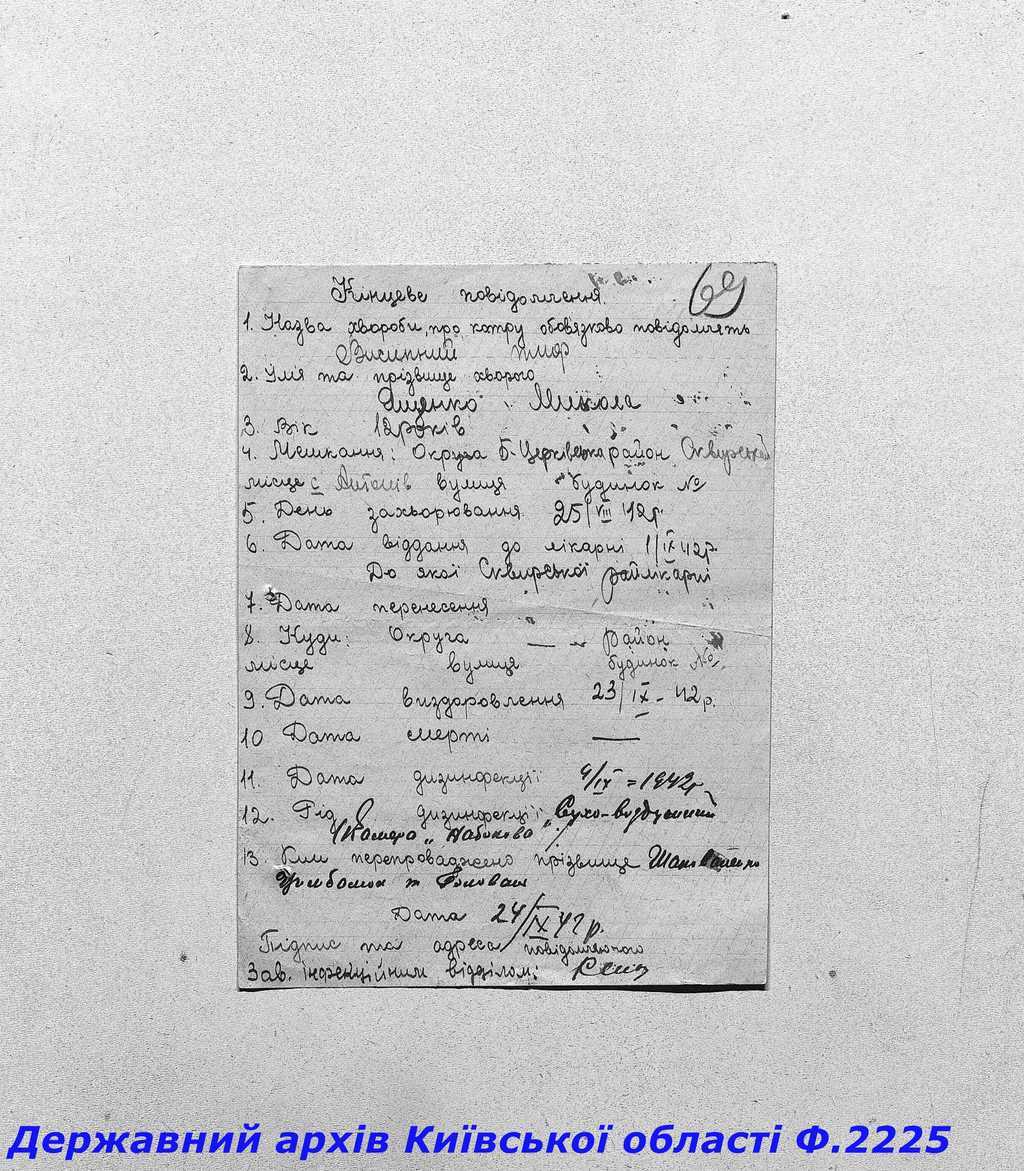 69
Кінцеве повідомлення.
1. Назва хвороби, про котру обов'язково повідомлять
Висипний тиф
2. Імія та прізвище хворого
Ященко Микола
3. Вік 12 років
4. Мешкання: Округа Б-Церківська район Сквирський
місце с. Антонів вулиця будинок №
5. День захворювання 25/VIII 42р.
6. Дата віддання до лікарні 1/IX 42р.
До якої Сквирської райлікарні
7. Дата перенесення
8. Куди: Округа — район
місце вулиця будинок №
9. Дата виздоровлення 23/IX - 42р.
10 Дата смерті —
11. Дата дизинфекції 4/IX = 1942р.
12. Рід дизинфекції „Сухо-воздушний
/Камера „Набокова"/
13. Ким перепроваджено прізвище
Дата 24/IX 42р.
Підпис та адреса повідомляючого
Зав. інфекційним відділом:
Державний архів Київської області Ф.2225